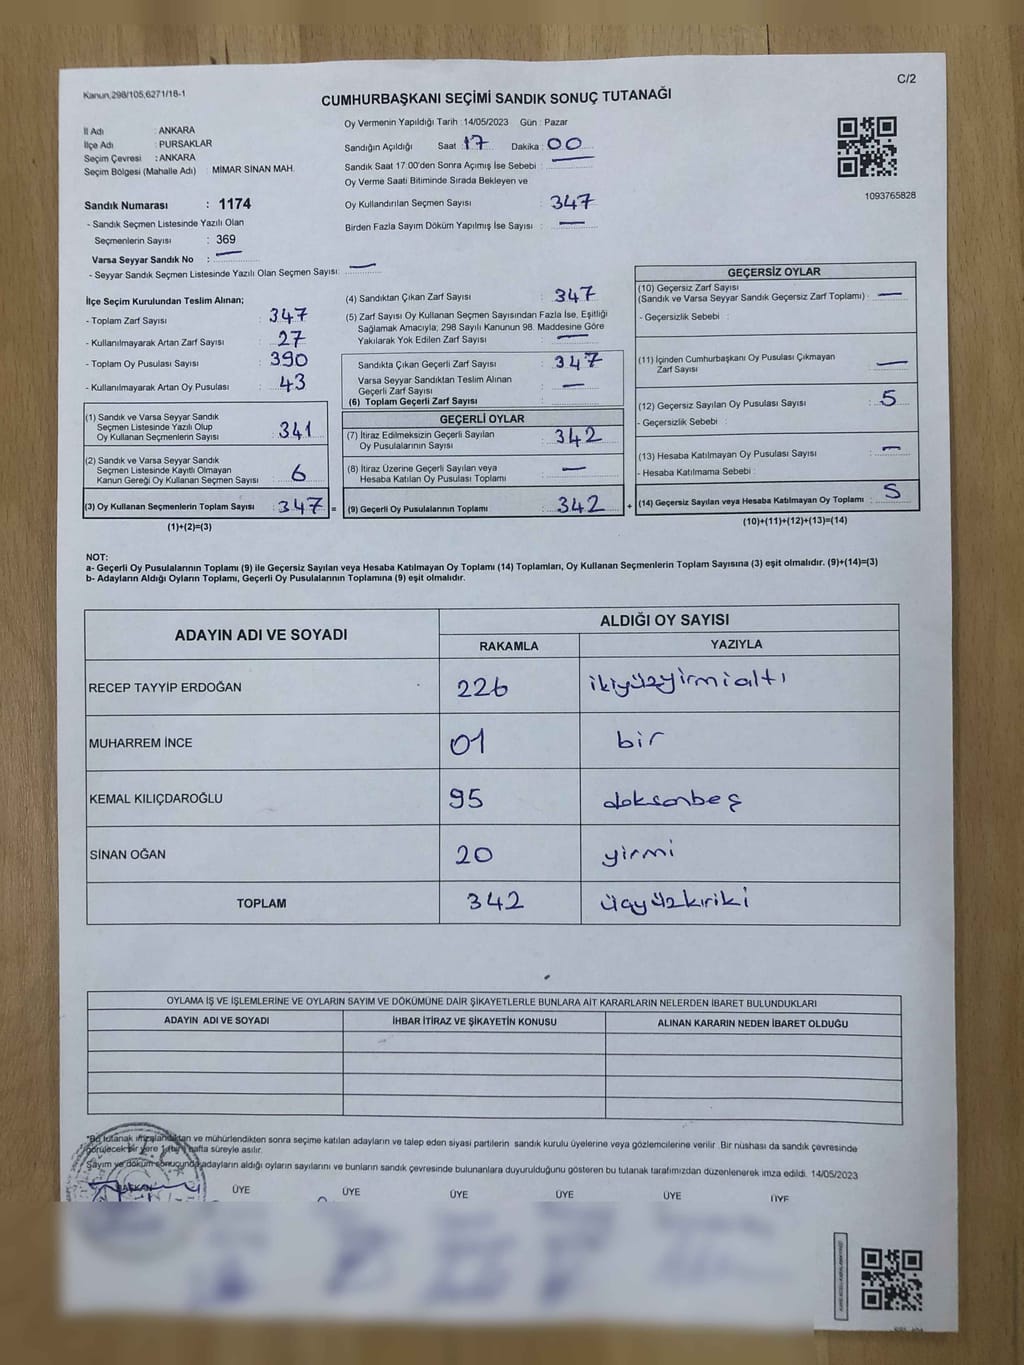 Kanun,298/105,6271/18-1
C/2
CUMHURBAŞKANI SEÇİMİ SANDIK SONUÇ TUTANAĞI
İl Adı : ANKARA
İlçe Adı : PURSAKLAR
Seçim Çevresi : ANKARA
Seçim Bölgesi (Mahalle Adı) : MİMAR SİNAN MAH.
Sandık Numarası : 1174
- Sandık Seçmen Listesinde Yazılı Olan
Seçmenlerin Sayısı : 369
Varsa Seyyar Sandık No : —
- Seyyar Sandık Seçmen Listesinde Yazılı Olan Seçmen Sayısı: —
Oy Vermenin Yapıldığı Tarih : 14/05/2023 Gün : Pazar
Sandığın Açıldığı Saat : 17 Dakika : 00
Sandık Saat 17:00'den Sonra Açımış İse Sebebi : —
Oy Verme Saati Bitiminde Sırada Bekleyen ve
Oy Kullandırılan Seçmen Sayısı : 347
Birden Fazla Sayım Döküm Yapılmış İse Sayısı : —
1093765828
İlçe Seçim Kurulundan Teslim Alınan;
- Toplam Zarf Sayısı : 347
- Kullanılmayarak Artan Zarf Sayısı : 27
- Toplam Oy Pusulası Sayısı : 390
- Kullanılmayarak Artan Oy Pusulası : 43
(1) Sandık ve Varsa Seyyar Sandık
Seçmen Listesinde Yazılı Olup
Oy Kullanan Seçmenlerin Sayısı : 341
(2) Sandık ve Varsa Seyyar Sandık
Seçmen Listesinde Kayıtlı Olmayan
Kanun Gereği Oy Kullanan Seçmen Sayısı : 6
(3) Oy Kullanan Seçmenlerin Toplam Sayısı : 347 =
(1)+(2)=(3)
(4) Sandıktan Çıkan Zarf Sayısı : 347
(5) Zarf Sayısı Oy Kullanan Seçmen Sayısından Fazla İse, Eşitliği
Sağlamak Amacıyla; 298 Sayılı Kanunun 98. Maddesine Göre
Yakılarak Yok Edilen Zarf Sayısı : —
Sandıkta Çıkan Geçerli Zarf Sayısı : 347
Varsa Seyyar Sandıktan Teslim Alınan
Geçerli Zarf Sayısı : —
(6) Toplam Geçerli Zarf Sayısı :
GEÇERLİ OYLAR
(7) İtiraz Edilmeksizin Geçerli Sayılan
Oy Pusulalarının Sayısı : 342
(8) İtiraz Üzerine Geçerli Sayılan veya
Hesaba Katılan Oy Pusulası Toplamı : —
(9) Geçerli Oy Pusulalarının Toplamı : 342 +
GEÇERSİZ OYLAR
(10) Geçersiz Zarf Sayısı
(Sandık ve Varsa Seyyar Sandık Geçersiz Zarf Toplamı) : —
- Geçersizlik Sebebi :
(11) İçinden Cumhurbaşkanı Oy Pusulası Çıkmayan
Zarf Sayısı : —
(12) Geçersiz Sayılan Oy Pusulası Sayısı : 5
- Geçersizlik Sebebi :
(13) Hesaba Katılmayan Oy Pusulası Sayısı : —
- Hesaba Katılmama Sebebi :
(14) Geçersiz Sayılan veya Hesaba Katılmayan Oy Toplamı : 5
(10)+(11)+(12)+(13)=(14)
NOT:
a- Geçerli Oy Pusulalarının Toplamı (9) ile Geçersiz Sayılan veya Hesaba Katılmayan Oy Toplamı (14) Toplamları, Oy Kullanan Seçmenlerin Toplam Sayısına (3) eşit olmalıdır. (9)+(14)=(3)
b- Adayların Aldığı Oyların Toplamı, Geçerli Oy Pusulalarının Toplamına (9) eşit olmalıdır.
ADAYIN ADI VE SOYADI ALDIĞI OY SAYISI
RAKAMLA YAZIYLA
RECEP TAYYİP ERDOĞAN 226 ikiyüzyirmialtı
MUHARREM İNCE 01 bir
KEMAL KILIÇDAROĞLU 95 doksanbeş
SİNAN OĞAN 20 yirmi
TOPLAM 342 üçyüzkırkiki
OYLAMA İŞ VE İŞLEMLERİNE VE OYLARIN SAYIM VE DÖKÜMÜNE DAİR ŞİKAYETLERLE BUNLARA AİT KARARLARIN NELERDEN İBARET BULUNDUKLARI
ADAYIN ADI VE SOYADI İHBAR İTİRAZ VE ŞİKAYETİN KONUSU ALINAN KARARIN NEDEN İBARET OLDUĞU
*Bu tutanak imzalandıktan ve mühürlendikten sonra seçime katılan adayların ve talep eden siyasi partilerin sandık kurulu üyelerine veya gözlemcilerine verilir. Bir nüshası da sandık çevresinde
görülecek bir yere 1 (bir) hafta süreyle asılır.
Sayım ve döküm sonucunda adayların aldığı oyların sayılarını ve bunların sandık çevresinde bulunanlara duyurulduğunu gösteren bu tutanak tarafımızdan düzenlenerek imza edildi. 14/05/2023
BAŞKAN ÜYE ÜYE ÜYE ÜYE ÜYE ÜYE